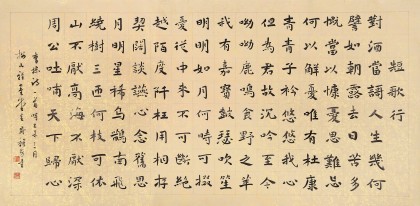 短歌行
對酒當歌人生幾何
譬如朝露去日苦多
慨當以慷憂思難忘
何以解憂唯有杜康
青青子衿悠悠我心
但為君故沉吟至今
呦呦鹿鳴食野之苹
我有嘉賓鼓瑟吹笙
明明如月何時可掇
憂從中來不可斷絕
越陌度阡枉用相存
契闊談讌心念舊恩
月明星稀烏鵲南飛
繞樹三匝何枝可依
山不厭高海不厭深
周公吐哺天下歸心
曹操詩一首